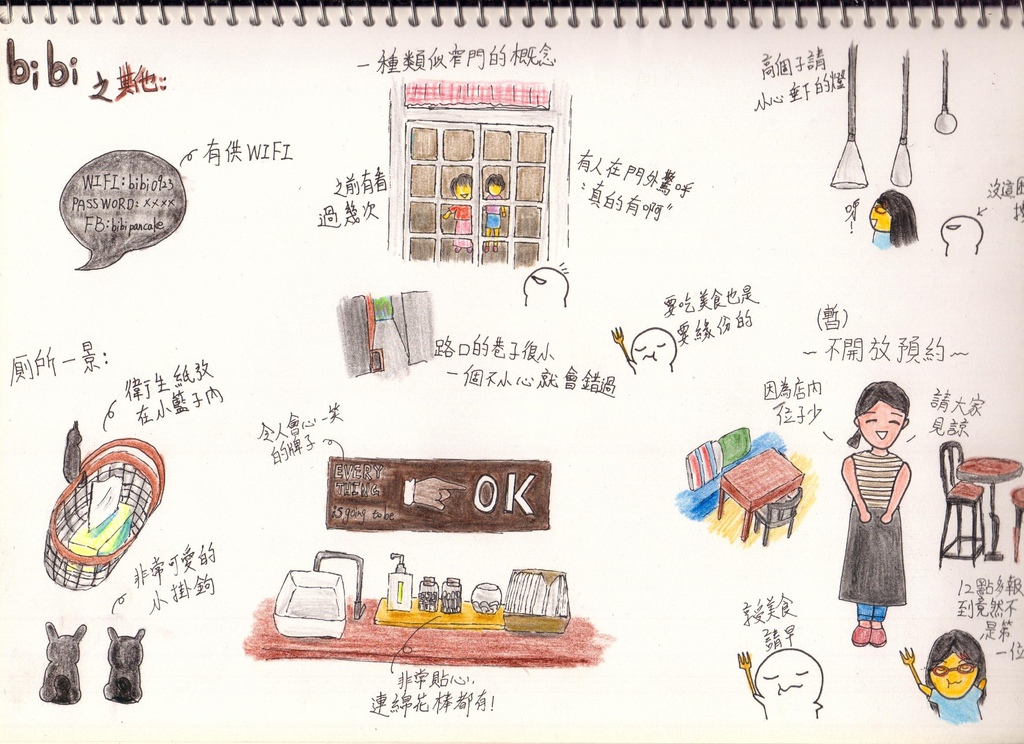 bibi 之其他:
有供WIFI
WIFI:bibi0923
PASSWORD:xxxx
FB:bibipancake
一種類似窄門的概念
之前有看
過幾次
有人在門外驚呼
"真的有啊"
高個子請
小心垂下的燈
呀!
沒這困
路口的巷子很小
一個不小心就會錯過
要吃美食也是
要緣份的
(暫)
~不開放預約~
因為店內
位子少
請大家
見諒
廁所一景:
衛生紙放
在小籃子內
非常可愛的
小掛鉤
令人會心一笑
的牌子
EVERY
THING
is going to be
OK
非常貼心,
連綿花棒都有!
享受美食
請早
12點多報
到竟然不
是第
一位